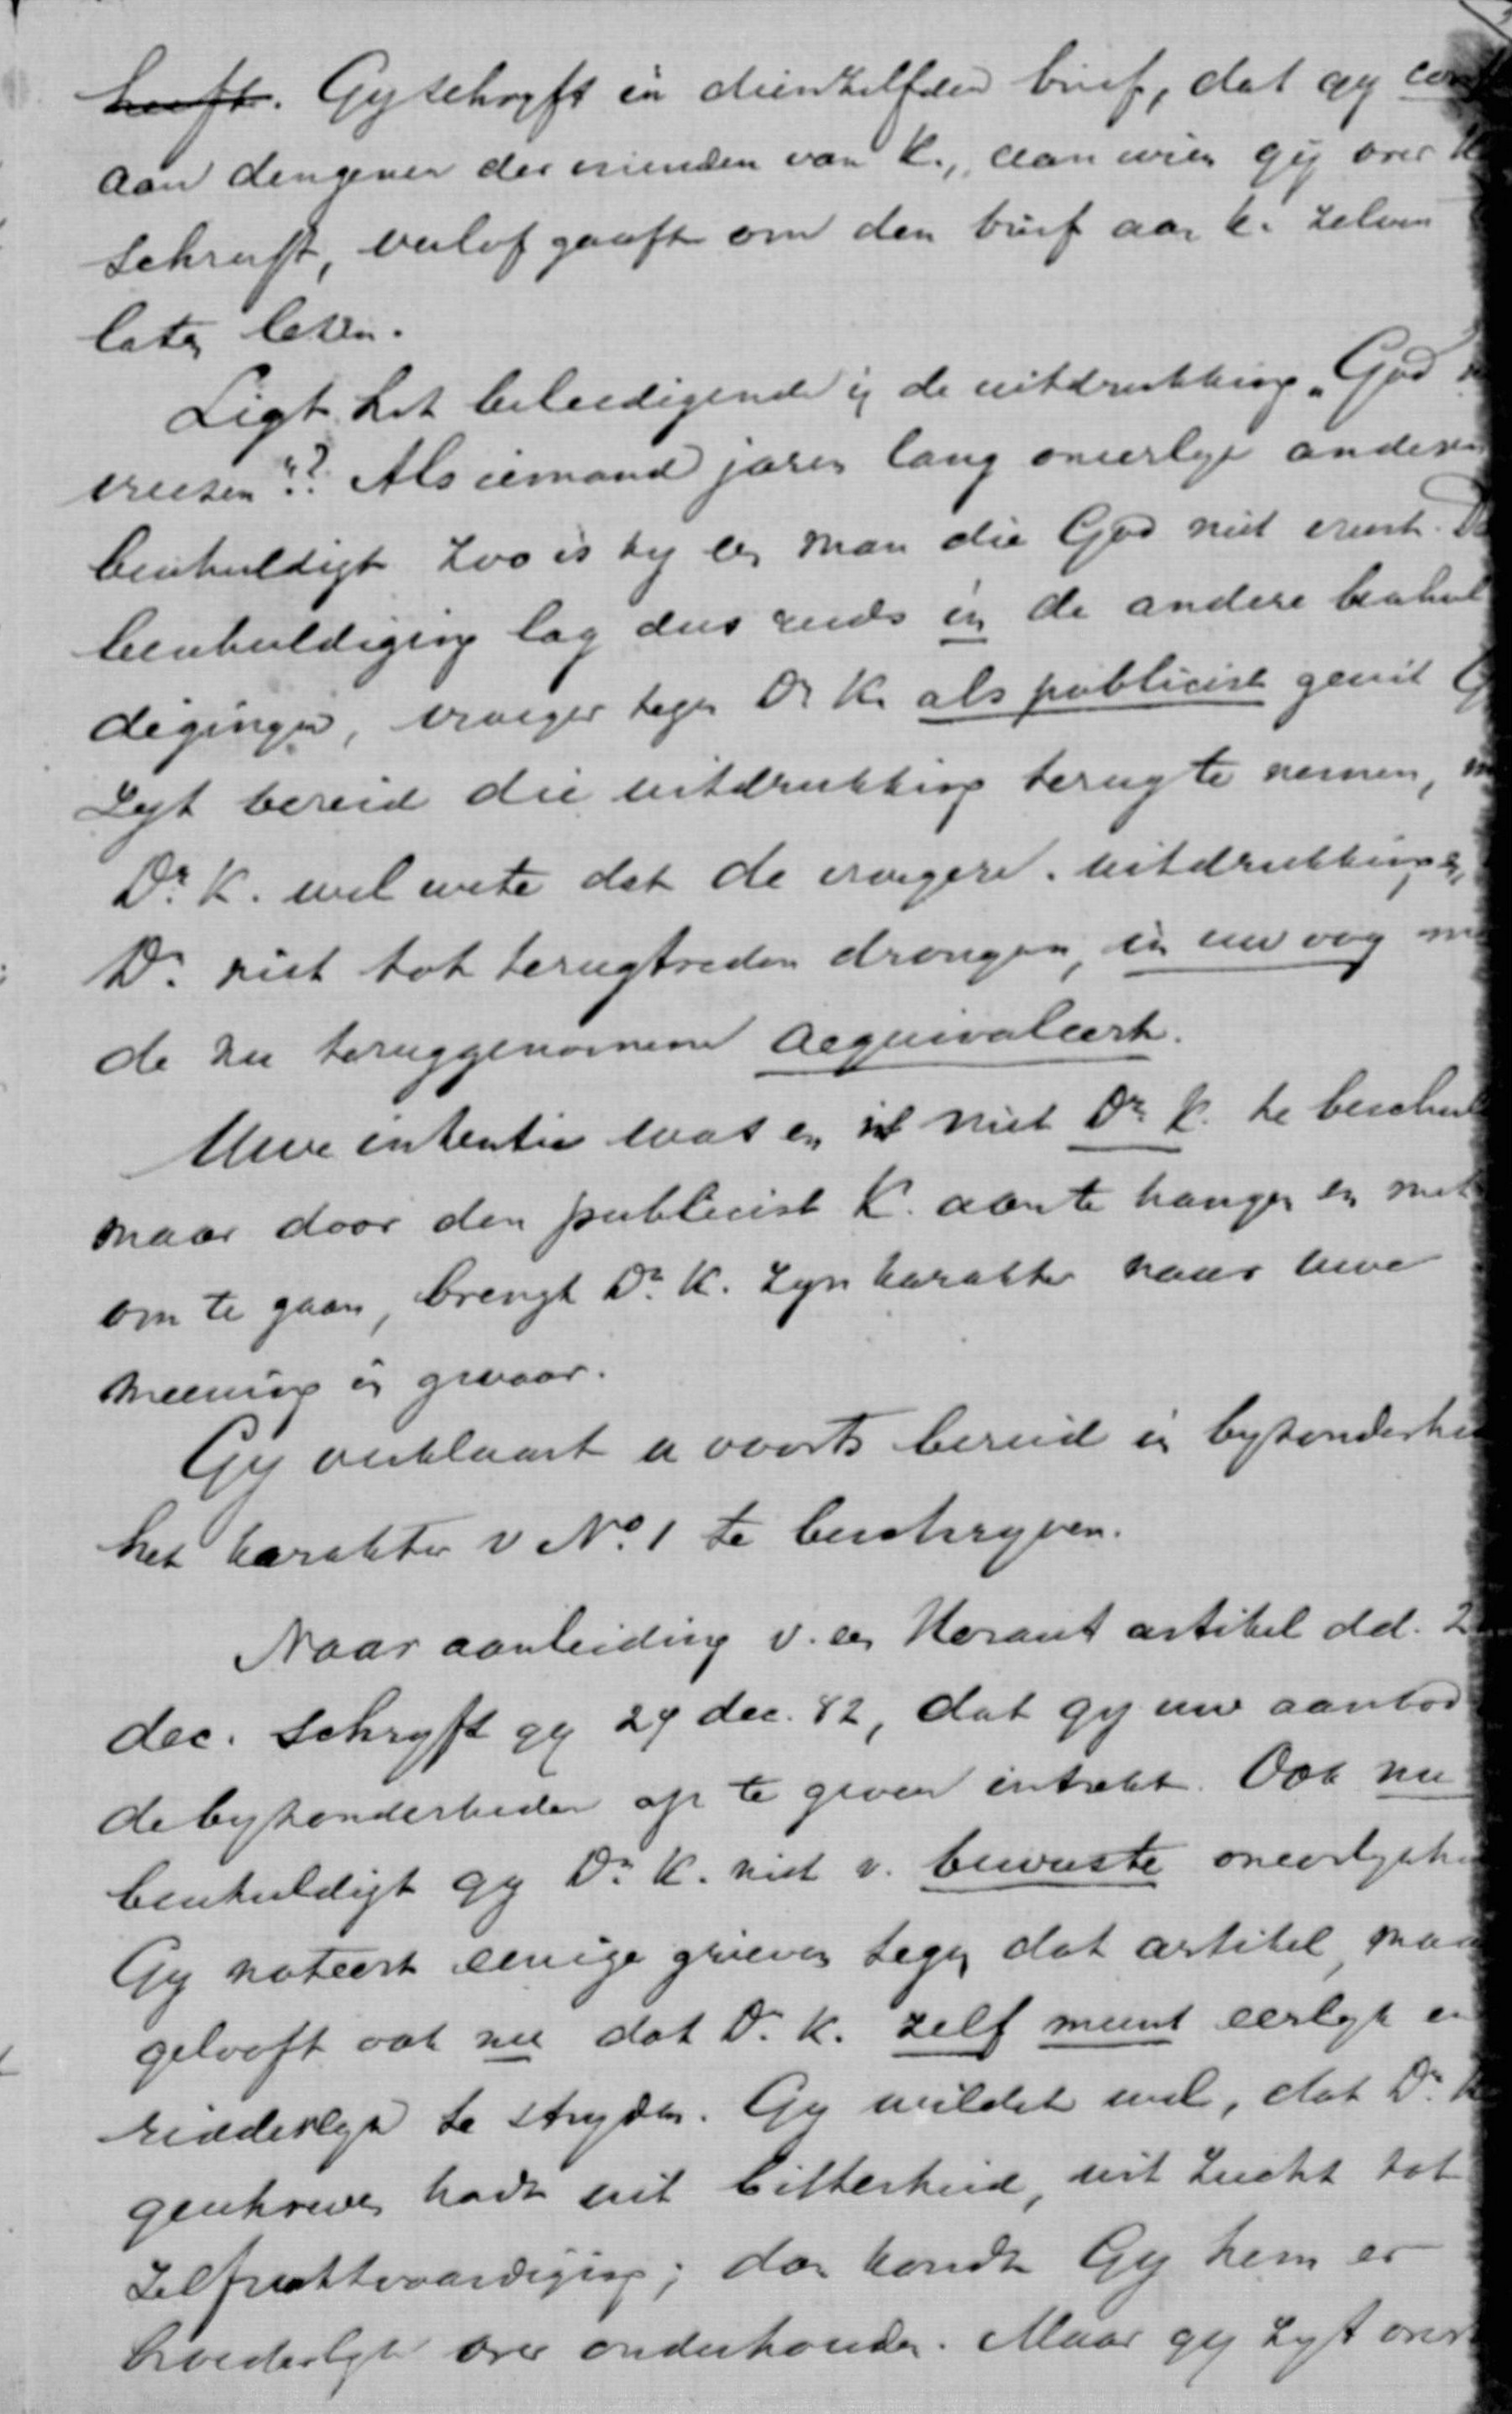 heeft. Gy schryft in dienzelfden brief, dat gy
aan dengenen der vrienden van K., aan wien gij over
schreeft, verlof gaaft om den brief aan K. zelven
laten lezen.
Ligt het beleedigende in de uitdrukking „God
vreezen"? Als iemand jaren lang oneerlyk anderen
beschuldigt zoo is hy een man die God niet vreest.
beschuldiging lag dus reeds in de andere beschul
digingen, vroeger tegen Dr K. als publicist geuit
Zyt bereid die uitdrukking terug te nemen,
Dr. K. wel wete dat de vroegere uitdrukkingen,
Dr. niet tot terugtreden drongen, in uw oog
de nu teruggenomene aequivaleert.
Uwe intentie was en is niet Dr. K. te beschul
maar door den publicist K. aan te hangen en met
om te gaan, brengt Dr. K. zyn karakter naar uwe
meening in gevaar.
Gy verklaart u voorts bereid in byzonderhe
het karakter v No. 1 te beschryven.
Naar aanleiding v. een Heraut artikel dd. 2
dec. schryft gy 29 dec. 82, dat gy uw aanbod
de byzonderheden op te geven intrekt. Ook nu
beschuldigt gy Dr. K. niet v. bewuste oneerlykhe
Gy noteert eenige grieven tegen dat artikel, maa
gelooft ook nu dat Dr. K. zelf meent eerlyk en
ridderlyk te stryden. Gy wildet wel, dat Dr. K
geschreven hadt uit bitterheid, uit zucht tot
zelfrechtvaardiging; dan kondt Gy hem er
broederlyk over onderhouden. Maar gy zyt over